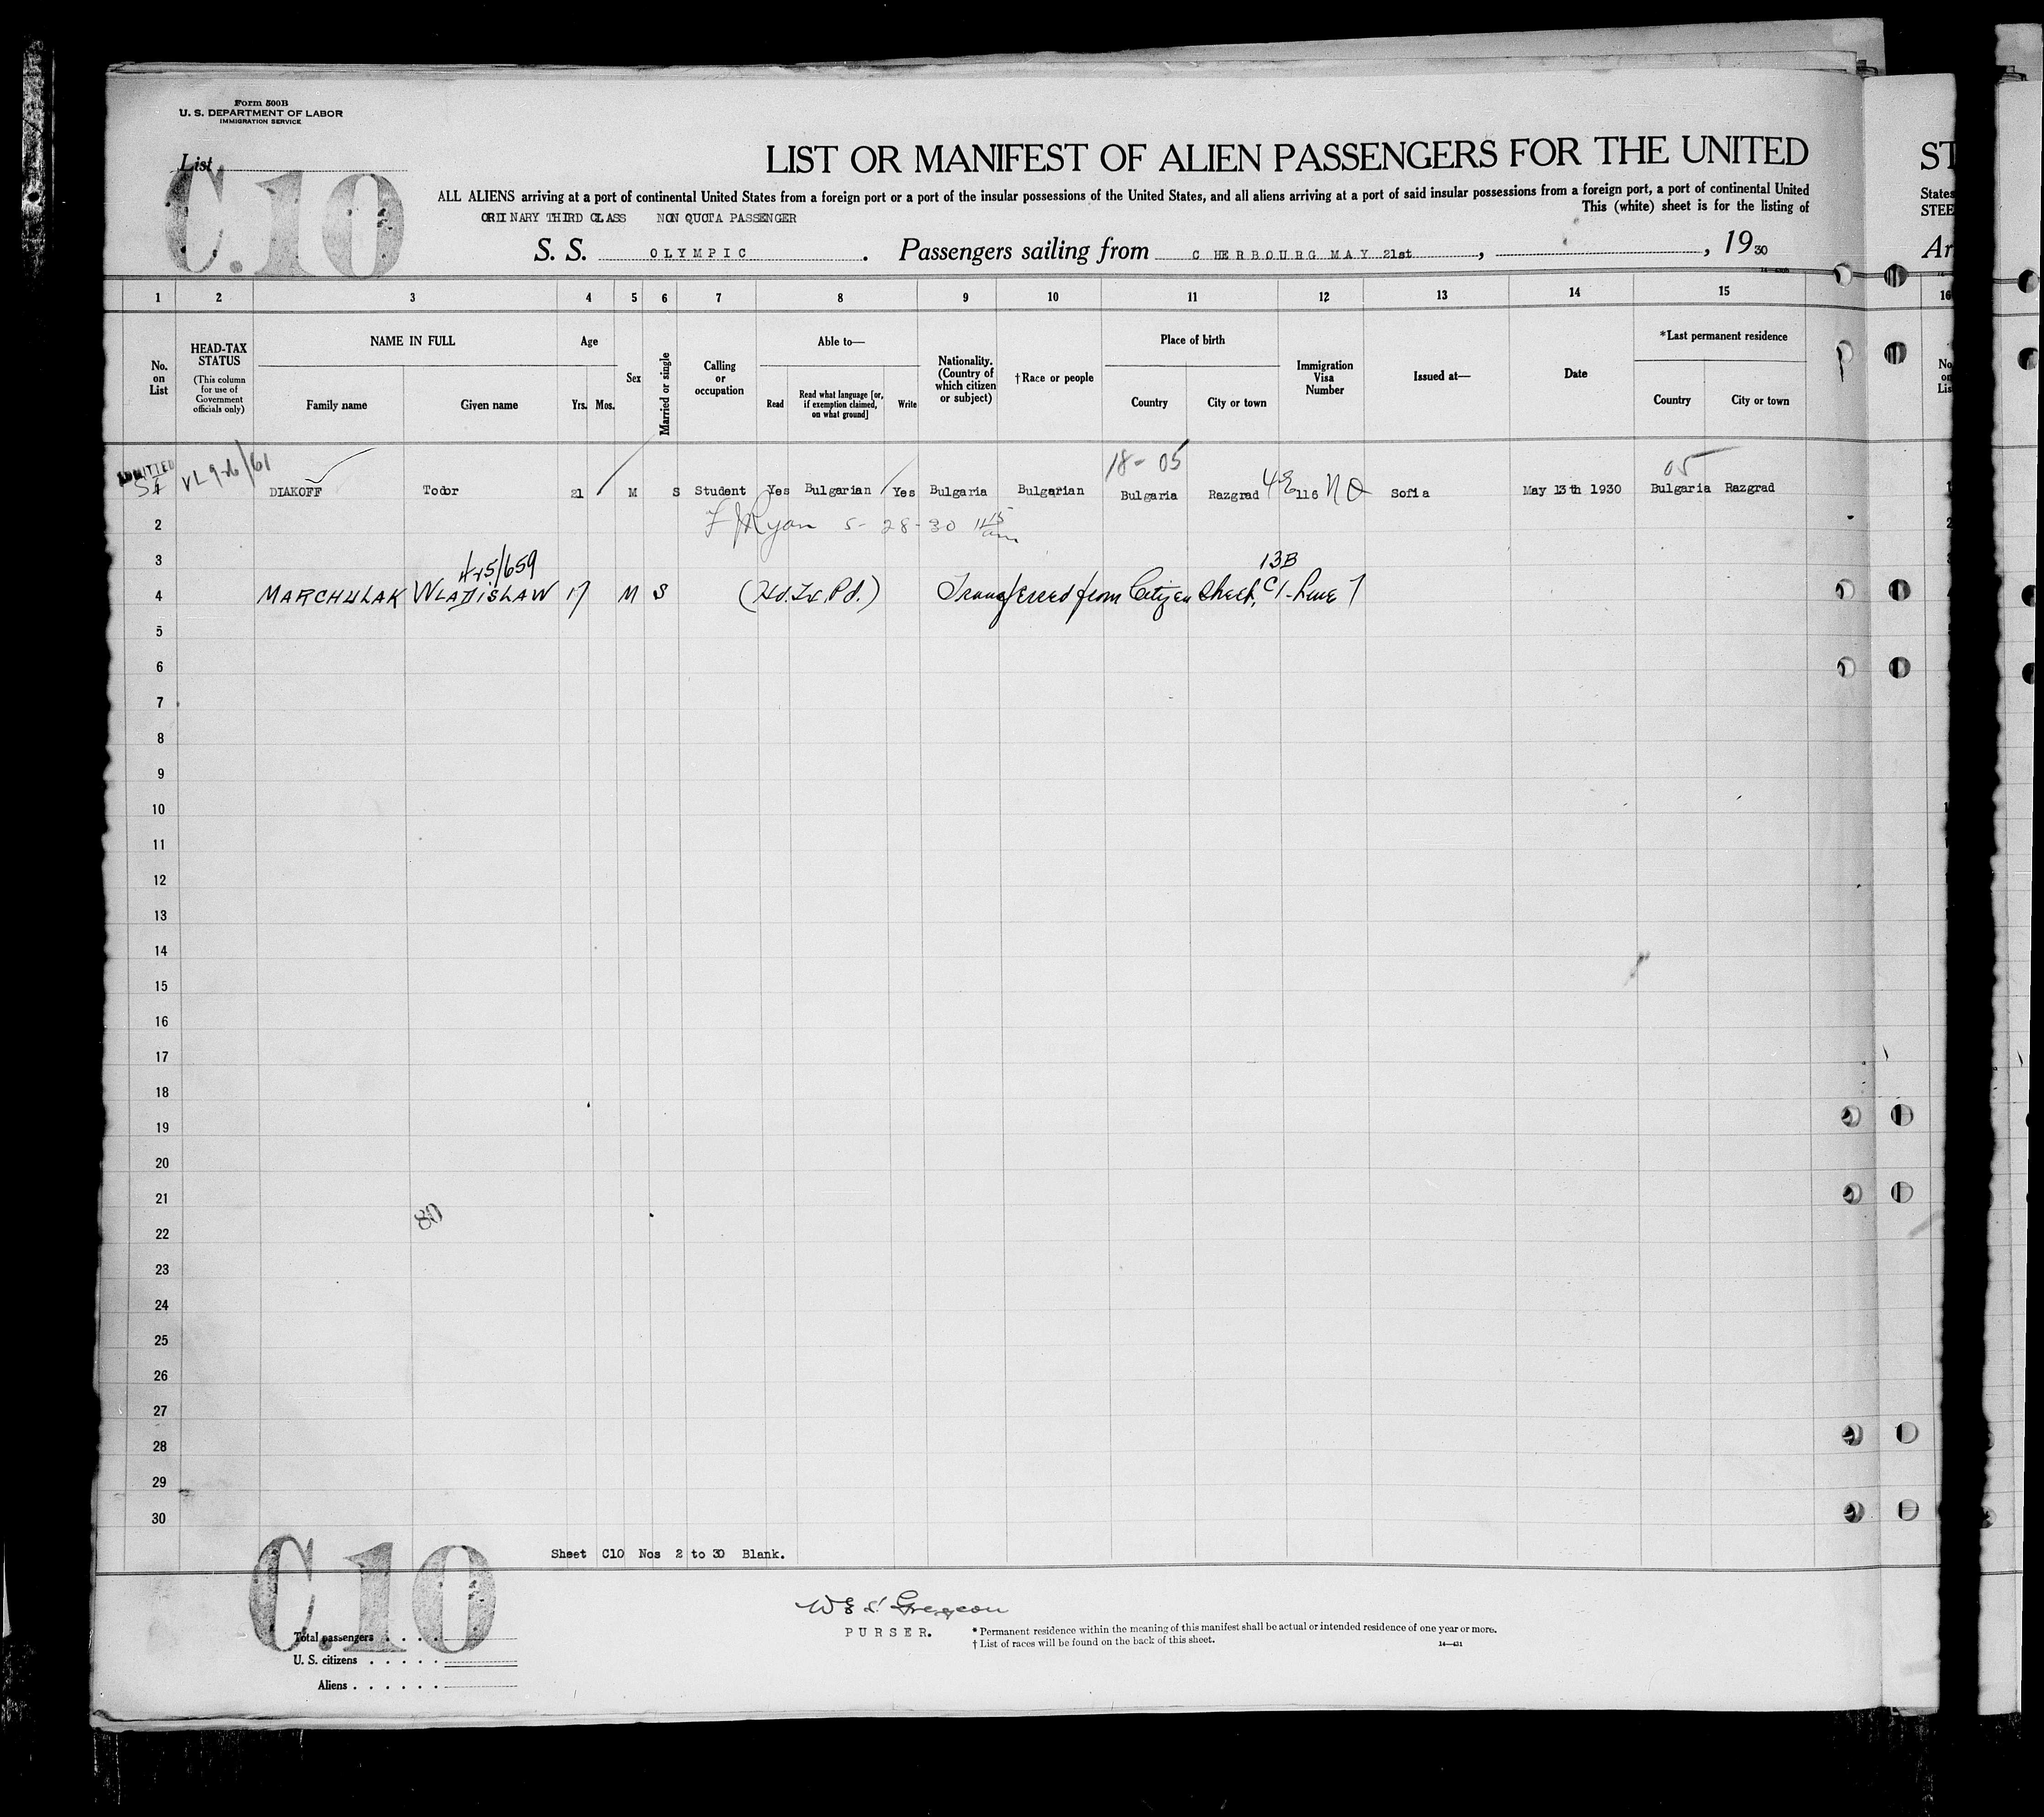 Form 500B
U. S. DEPARTMENT OF LABOR
IMMIGRATION SERVICE
List
C.10
LIST OR MANIFEST OF ALIEN PASSENGERS FOR THE UNITED
ST
ALL ALIENS arriving at a port of continental United States from a foreign port or a port of the insular possessions of the United States, and all aliens arriving at a port of said insular possessions from a foreign port, a port of continental United
States
This (white) sheet is for the listing of
STEE
ORDINARY THIRD CLASS NON QUOTA PASSENGER
S. S. OLYMPIC. Passengers sailing from CHERBOURG MAY 21st, , 1930
Ar
1 2 3 4 5 6 7 8 9 10 11 12 13 14 15 16
No. on List
HEAD-TAX STATUS
(This column for use of Government officials only)
NAME IN FULL
Family name Given name
Age
Yrs. Mos.
Sex
Married or single
Calling or occupation
Able to—
Read
Read what language [or, if exemption claimed, on what ground]
Write
Nationality. (Country of which citizen or subject)
†Race or people
Place of birth
Country City or town
Immigration Visa Number
Issued at—
Date
*Last permanent residence
Country City or town
No. on List
ADMITTED
18-05
05
DIAKOFF Todor 21 M S Student Yes Bulgarian Yes Bulgaria Bulgarian Bulgaria Razgrad 116 NQ Sofia May 13th 1930 Bulgaria Razgrad
2 F J Ryan 5-28-30 11 15 am
3
13B
4 MARCHULAK WLADISLAW 17 M S (Hd. Tx. Pd.) Transferred from Citizen Sheet, C1-Line 7
5
6
7
8
9
10
11
12
13
14
15
16
17
18
19
20
21
80
22
23
24
25
26
27
28
29
30
Sheet C10 Nos 2 to 30 Blank.
C.10
PURSER.
* Permanent residence within the meaning of this manifest shall be actual or intended residence of one year or more.
† List of races will be found on the back of this sheet.
14—431
Total passengers . . . .
U. S. citizens . . . . .
Aliens . . . . . .